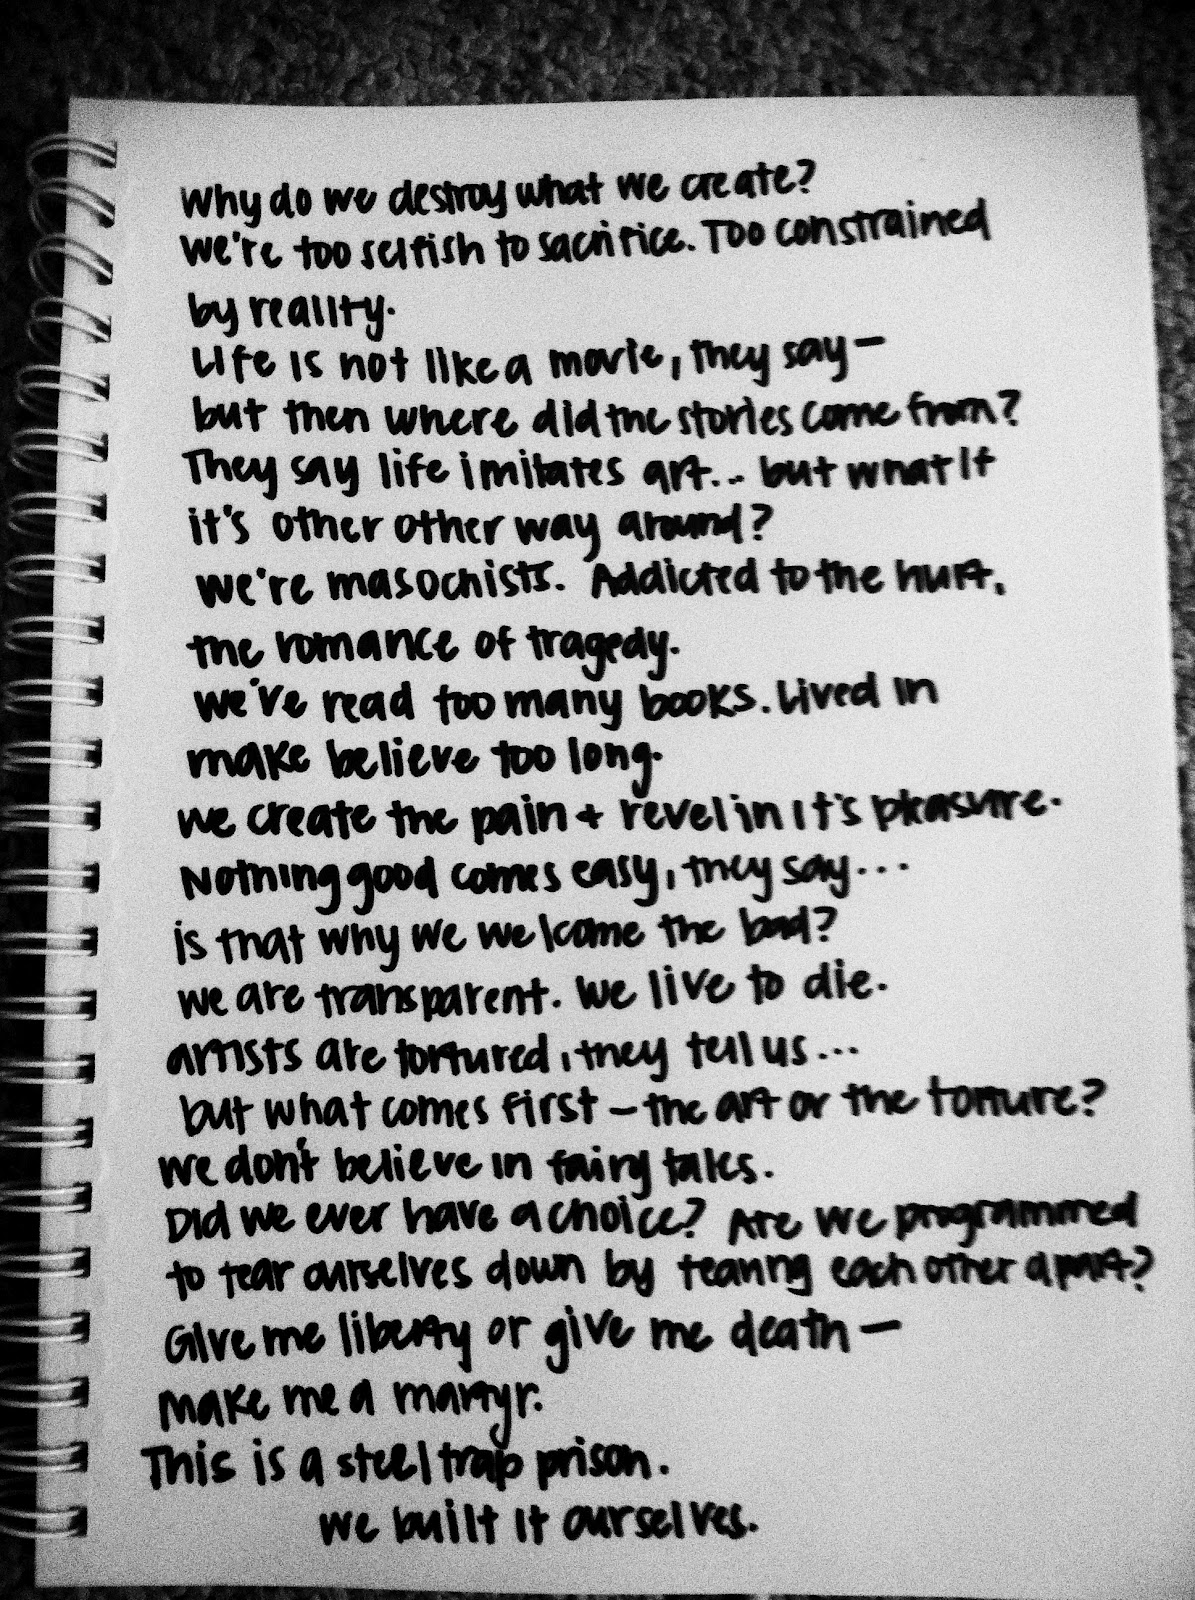 Why do we destroy what we create?
We're too selfish to sacrifice. Too constrained
by reality.
Life is not like a movie, they say—
but then where did the stories come from?
They say life imitates art... but what if
it's other other way around?
We're masochists. Addicted to the hurt,
the romance of tragedy.
We've read too many books. Lived in
make believe too long.
We create the pain + revel in it's pleasure.
Nothing good comes easy, they say...
is that why we welcome the bad?
We are transparent. We live to die.
artists are tortured, they tell us...
but what comes first—the art or the torture?
We don't believe in fairy tales.
Did we ever have a choice? Are we programmed
to tear ourselves down by tearing each other apart?
Give me liberty or give me death—
Make me a martyr.
This is a steel trap prison.
We built it ourselves.